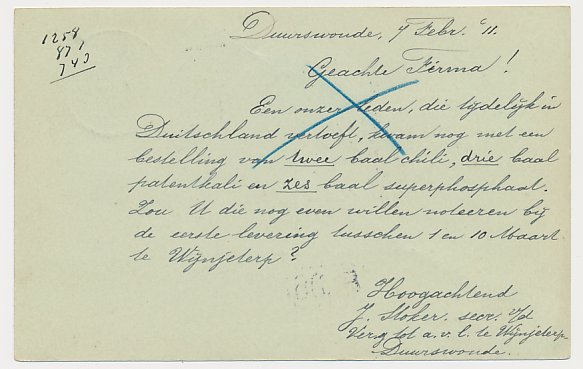 1258
871
743
Duurswoude, 7 Febr. '11.
Geachte Firma!
Een onzer leden, die tijdelijk in
Duitschland vertoeft, kwam nog met een
bestelling van twee baal chili, drie baal
patentkali en zes baal superphosphaat.
Zou U die nog even willen noteeren bij
de eerste levering tusschen 1 en 10 Maart
te Wijnjeterp?
Hoogachtend
J. Stoker. secr. v/d
Ver.g tot a.v.l. te Wijnjeterp
Duurswoude.